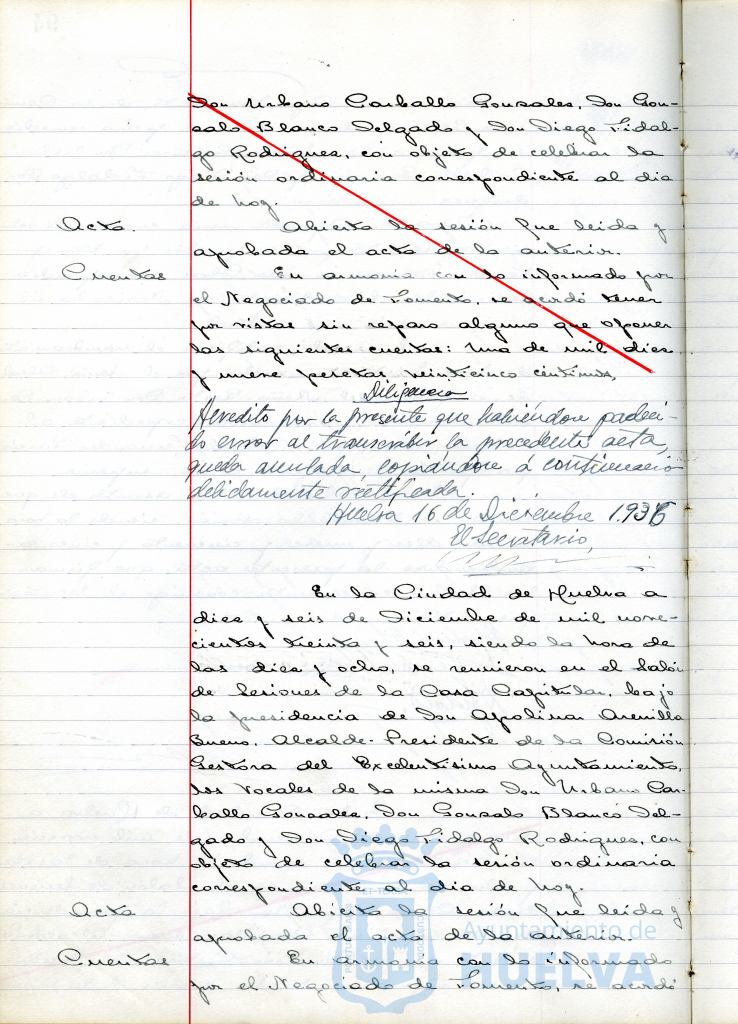 Don Urbano Carballo Gonzales, Don Gon-
zalo Blanco Delgado y Don Diego Fidal-
go Rodrigues, con objeto de celebrar la
sesión ordinaria correspondiente al dia
de hoy.
Acta. Abierta la sesión fue leida y
aprobada el acta de la anterior.
Cuentas En armonia con lo informado por
el Negociado de Fomento, se acordó tener
por vistas sin reparo alguno que oponer
las siguientes cuentas: Una de mil dies
y nueve pesetas veinticinco centimos,
Diligencia
Acredito por la presente que habiéndose padeci-
do error al transcribir la precedente acta,
queda anulada, copiándose á continuació
debidamente rectificada.
Huelva 16 de Diciembre 1.936
El Secretario,
En la Ciudad de Huelva a
dies y seis de Diciembre de mil nove-
cientos treinta y seis, siendo la hora de
las dies y ocho, se reunieron en el Salón
de Sesiones de la Casa Capitular, bajo
la presidencia de Don Apolinar Arenilla
Bueno, Alcalde-Presidente de la Comisión
Gestora del Excelentisimo Ayuntamiento,
los Vocales de la misma Don Urbano Car-
ballo Gonsales, Don Gonzalo Blanco Del-
gado y Don Diego Fidalgo Rodrigues, con
objeto de celebrar la sesión ordinaria
correspondiente al dia de hoy.
Acta Abierta la sesión fue leida y
aprobada el acta de la anterior.
Cuentas En armonia con lo informado
por el Negociado de Fomento, se acordó
Ayuntamiento de
HUELVA